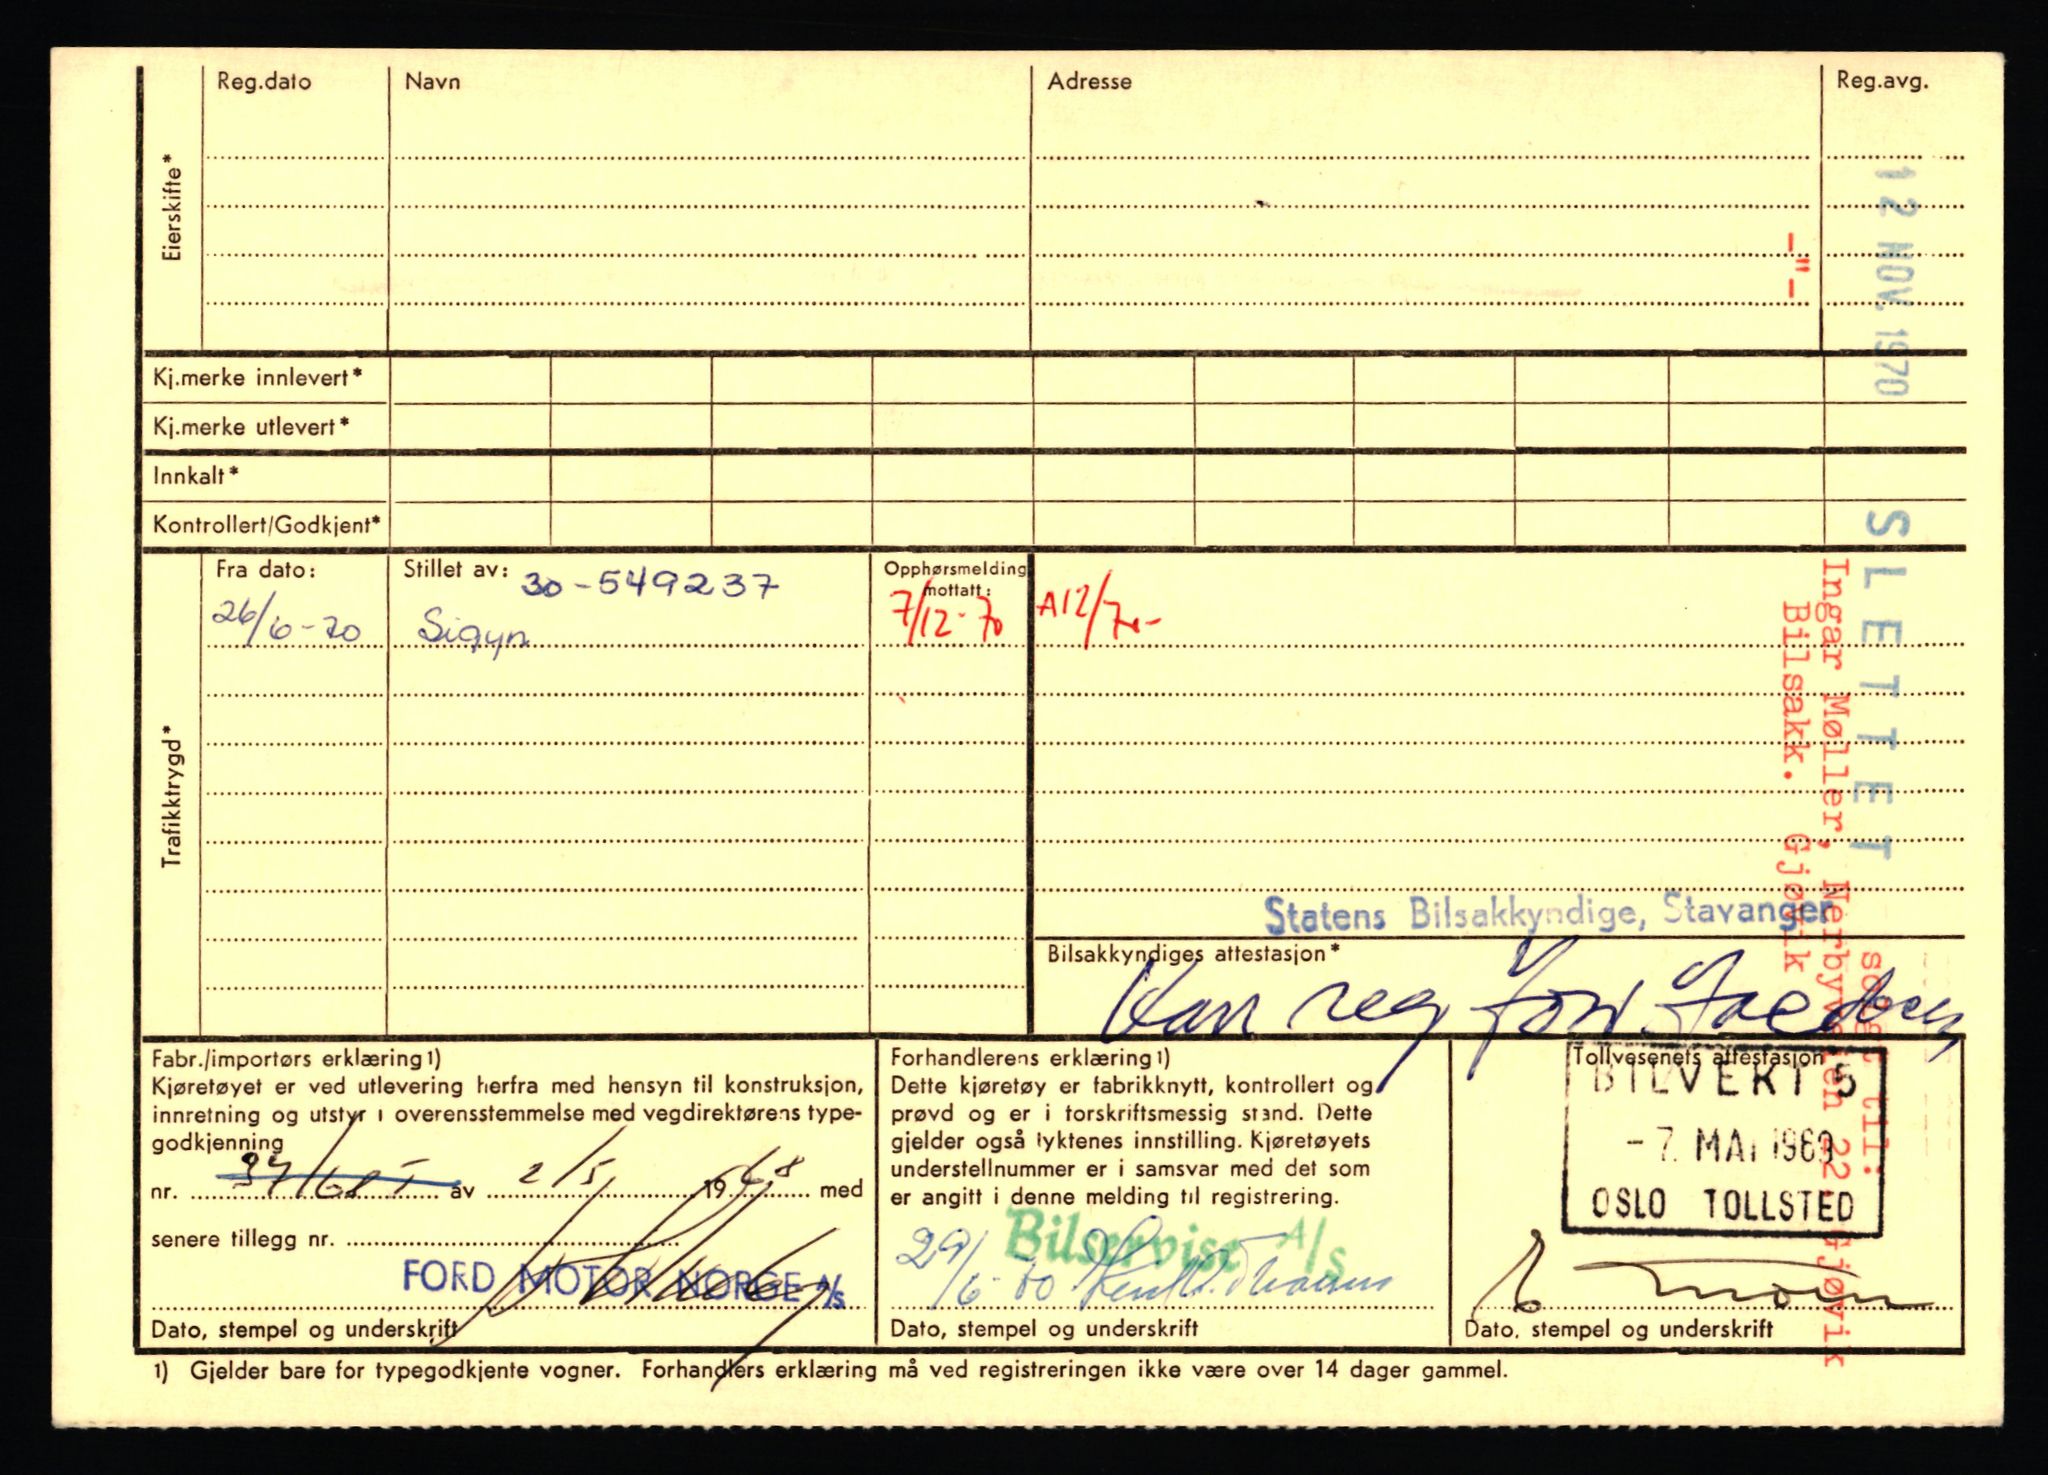 Reg.dato Navn Adresse Reg.avg.
Eierskifte*
-"-
12 NOV. 1970
Kj.merke innlevert*
Kj.merke utlevert*
Innkalt*
Kontrollert/Godkjent*
Trafikktrygd*
Fra dato: Stillet av: 30-549237 Opphørsmelding mottatt:
26/6-70 Sigyn 7/12-70 A12/70-
SLETTET
solgt til:
Ingar Møller, Nerbyveien 22, Gjøvik
Bilsakk. Gjøvik
Statens Bilsakkyndige, Stavanger
Bilsakkyndiges attestasjon*
Kan reg
Fabr./importørs erklæring 1)
Kjøretøyet er ved utlevering herfra med hensyn til konstruksjon,
innretning og utstyr i overensstemmelse med vegdirektørens type-
godkjenning
nr. 37/68 I av 2/5 1968 med
senere tillegg nr.
FORD MOTOR NORGE A/S
Dato, stempel og underskrift
Forhandlerens erklæring 1)
Dette kjøretøy er fabrikknytt, kontrollert og
prøvd og er i forskriftsmessig stand. Dette
gjelder også lyktenes innstilling. Kjøretøyets
understellnummer er i samsvar med det som
er angitt i denne melding til registrering.
Bilservise A/S
29/6-70
Dato, stempel og underskrift
Tollvesenets attestasjon
BILVEKT 5
-7. MAI 1969
OSLO TOLLSTED
Dato, stempel og underskrift
1) Gjelder bare for typegodkjente vogner. Forhandlers erklæring må ved registreringen ikke være over 14 dager gammel.